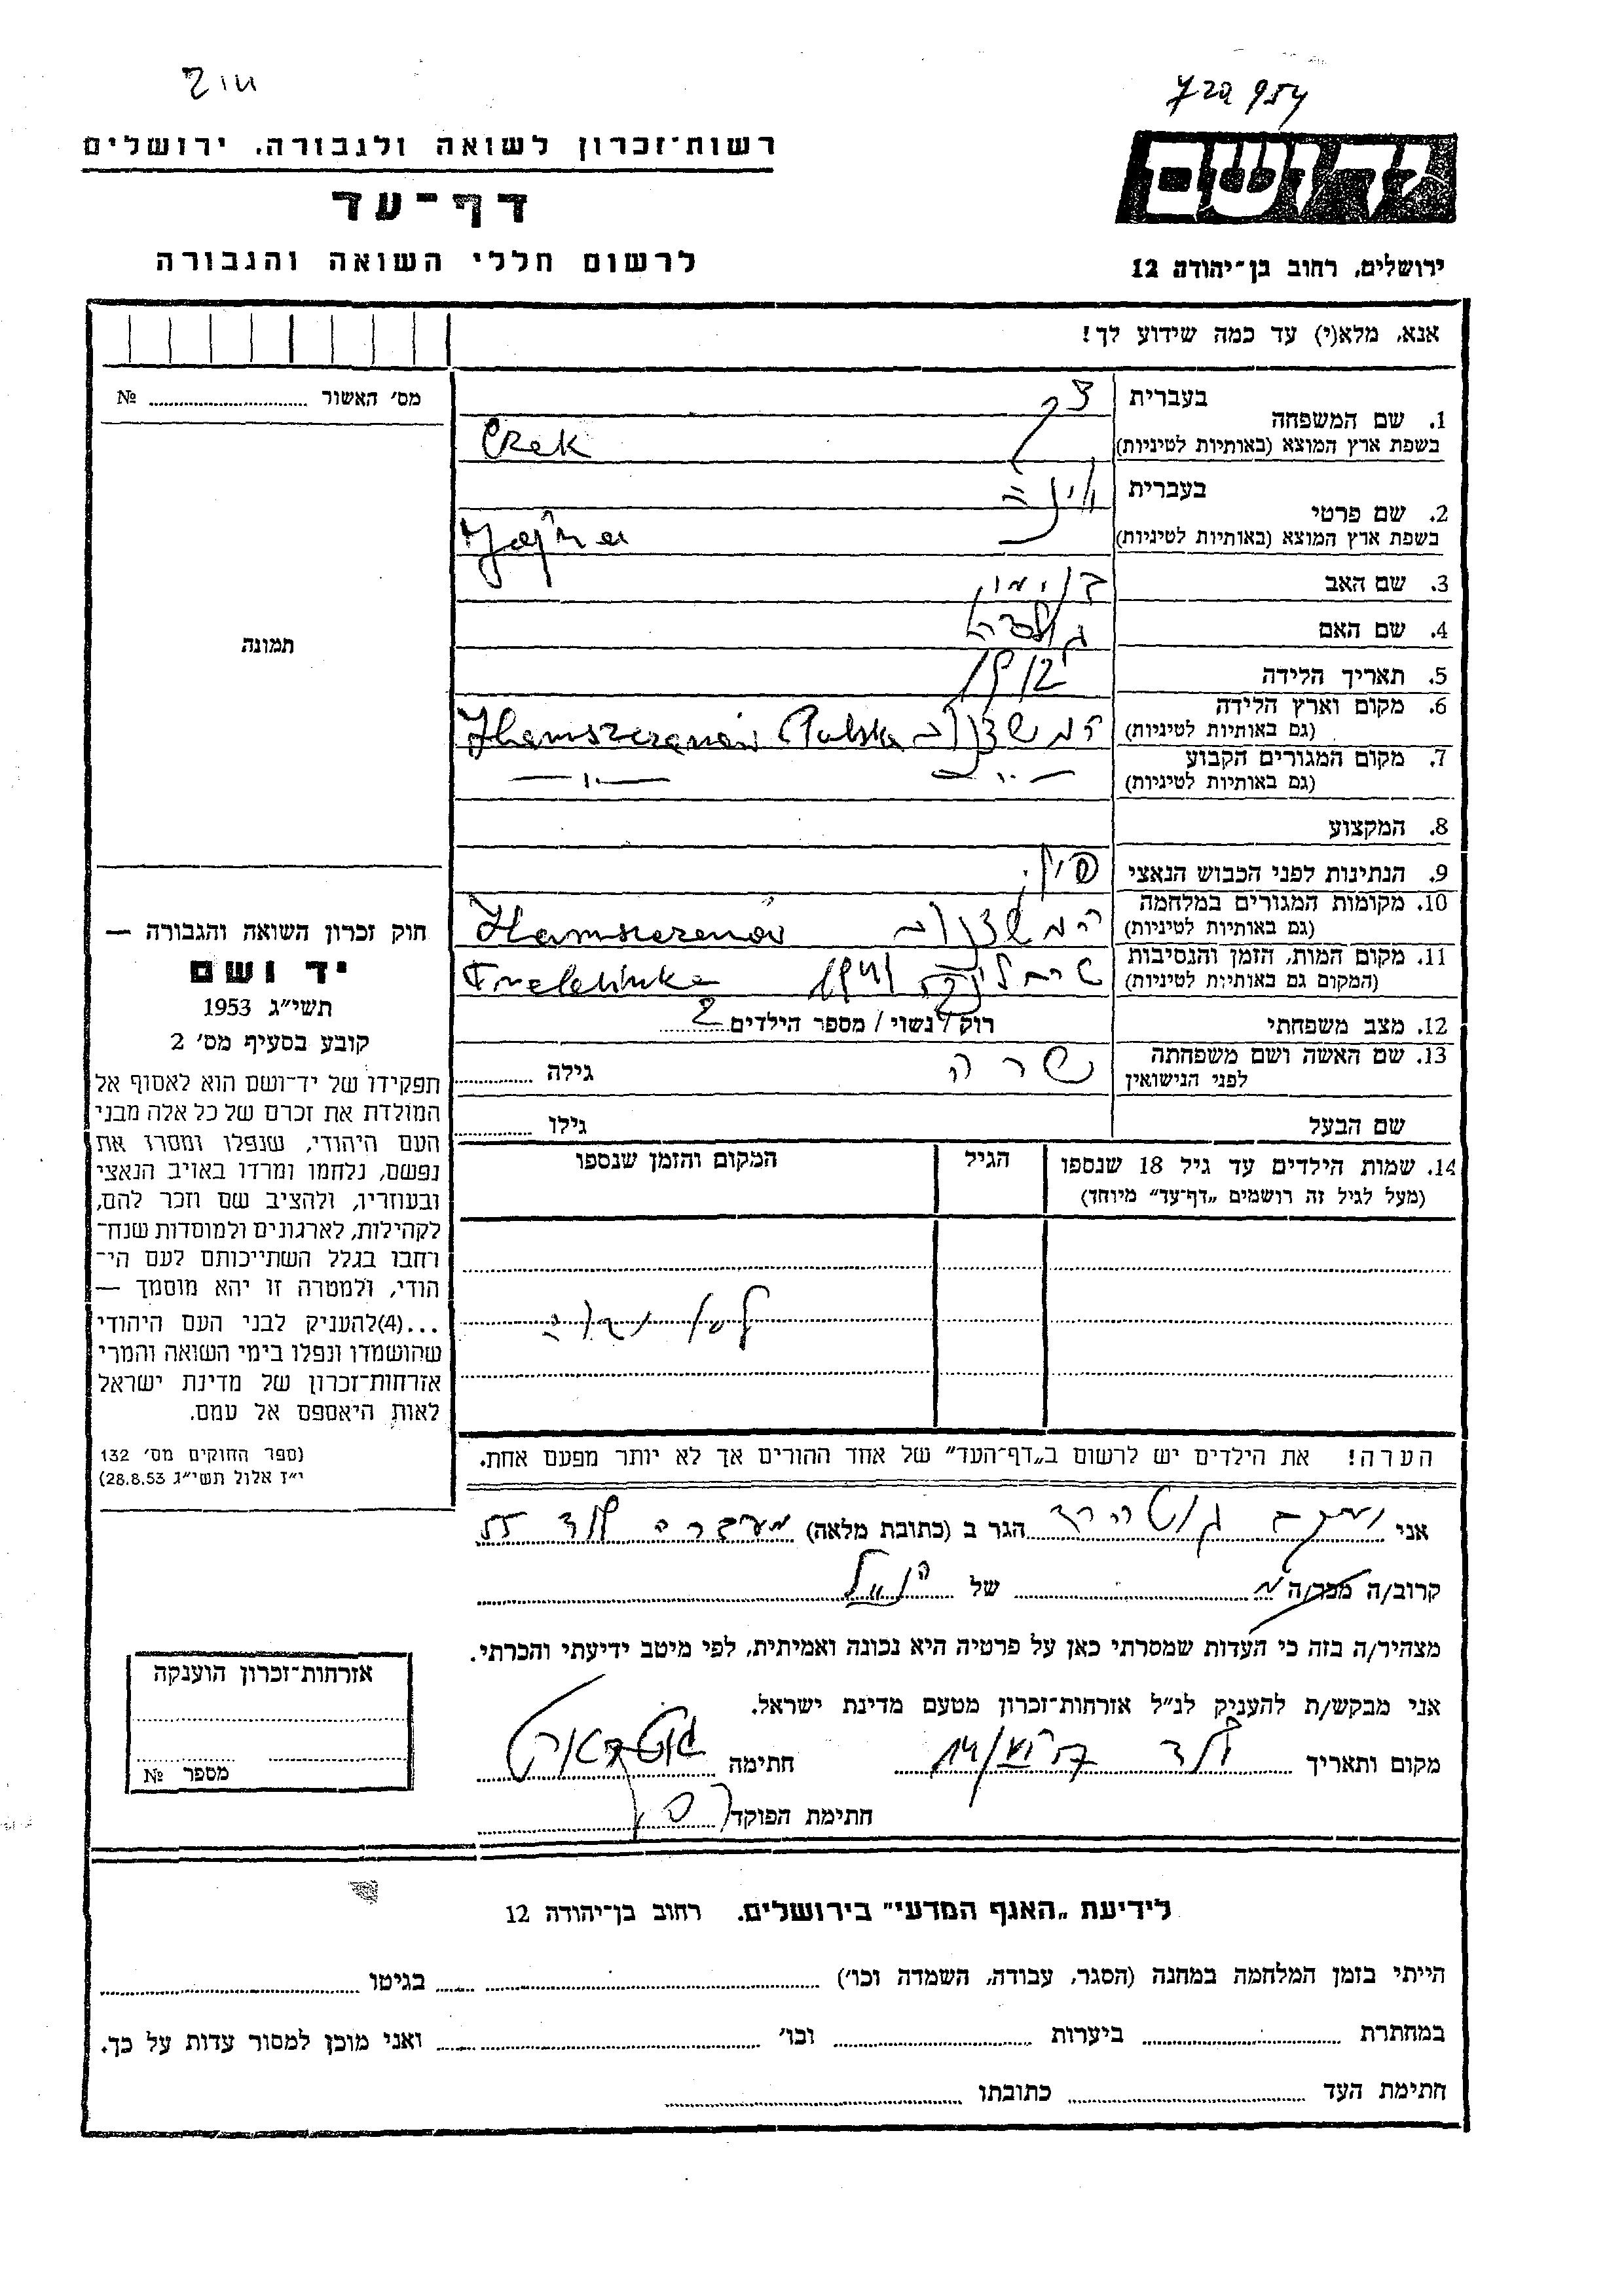 רשות־זכרון לשואה ולגבורה, ירושלים
דף־עד
לרשום חללי השואה והגבורה
ירושלים, רחוב בן־יהודה 12
אנא, מלא(י) עד כמה שידוע לך!
מס׳ האשור № 
1. שם המשפחה
בעברית
בשפת ארץ המוצא (באותיות לטיניות) Czek
2. שם פרטי
בעברית
בשפת ארץ המוצא (באותיות לטיניות)
3. שם האב
4. שם האם
5. תאריך הלידה 1912
6. מקום וארץ הלידה
(גם באותיות לטיניות) Polska
7. מקום המגורים הקבוע
(גם באותיות לטיניות)
8. המקצוע
9. הנתינות לפני הכבוש הנאצי
10. מקומות המגורים במלחמה
(גם באותיות לטיניות)
11. מקום המות, הזמן והנסיבות
(המקום גם באותיות לטיניות) 1941
12. מצב משפחתי רוק / נשוי / מספר הילדים 2
13. שם האשה ושם משפחתה
לפני הנישואין שרה גילה
שם הבעל גילו
14. שמות הילדים עד גיל 18 שנספו הגיל המקום והזמן שנספו
(מעל לגיל זה רושמים „דף־עד״ מיוחד)
הערה! את הילדים יש לרשום ב„דף־העד״ של אחד ההורים אך לא יותר מפעם אחת.
תמונה
חוק זכרון השואה והגבורה —
יד ושם
תשי״ג 1953
קובע בסעיף מס׳ 2
תפקידו של יד־ושם הוא לאסוף אל
המולדת את זכרם של כל אלה מבני
העם היהודי, שנפלו ומסרו את
נפשם, נלחמו ומרדו באויב הנאצי
ובעוזריו, ולהציב שם וזכר להם,
לקהילות, לארגונים ולמוסדות שנח־
רחבו בגלל השתייכותם לעם הי־
הודי, ולמטרה זו יהא מוסמך —
...(4)להעניק לבני העם היהודי
שהושמדו ונפלו בימי השואה והמרי
אזרחות־זכרון של מדינת ישראל
לאות היאספם אל עמם.
(ספר החוקים מס׳ 132
י״ז אלול תשי״ג 28.8.53)
אני הגר ב (כתובת מלאה) מעברה לוד
קרוב/ה מכר/ה של הנ״ל
מצהיר/ה בזה כי העדות שמסרתי כאן על פרטיה היא נכונה ואמיתית, לפי מיטב ידיעתי והכרתי.
אני מבקש/ת להעניק לנ״ל אזרחות־זכרון מטעם מדינת ישראל.
מקום ותאריך לוד חתימה
חתימת הפוקד
אזרחות־זכרון הוענקה
מספר №
לידיעת „האגף המדעי״ בירושלים. רחוב בן־יהודה 12
הייתי בזמן המלחמה במחנה (הסגר, עבודה, השמדה וכו׳) בגיטו
במחתרת ביערות וכו׳ ואני מוכן למסור עדות על כך.
חתימת העד כתובתו